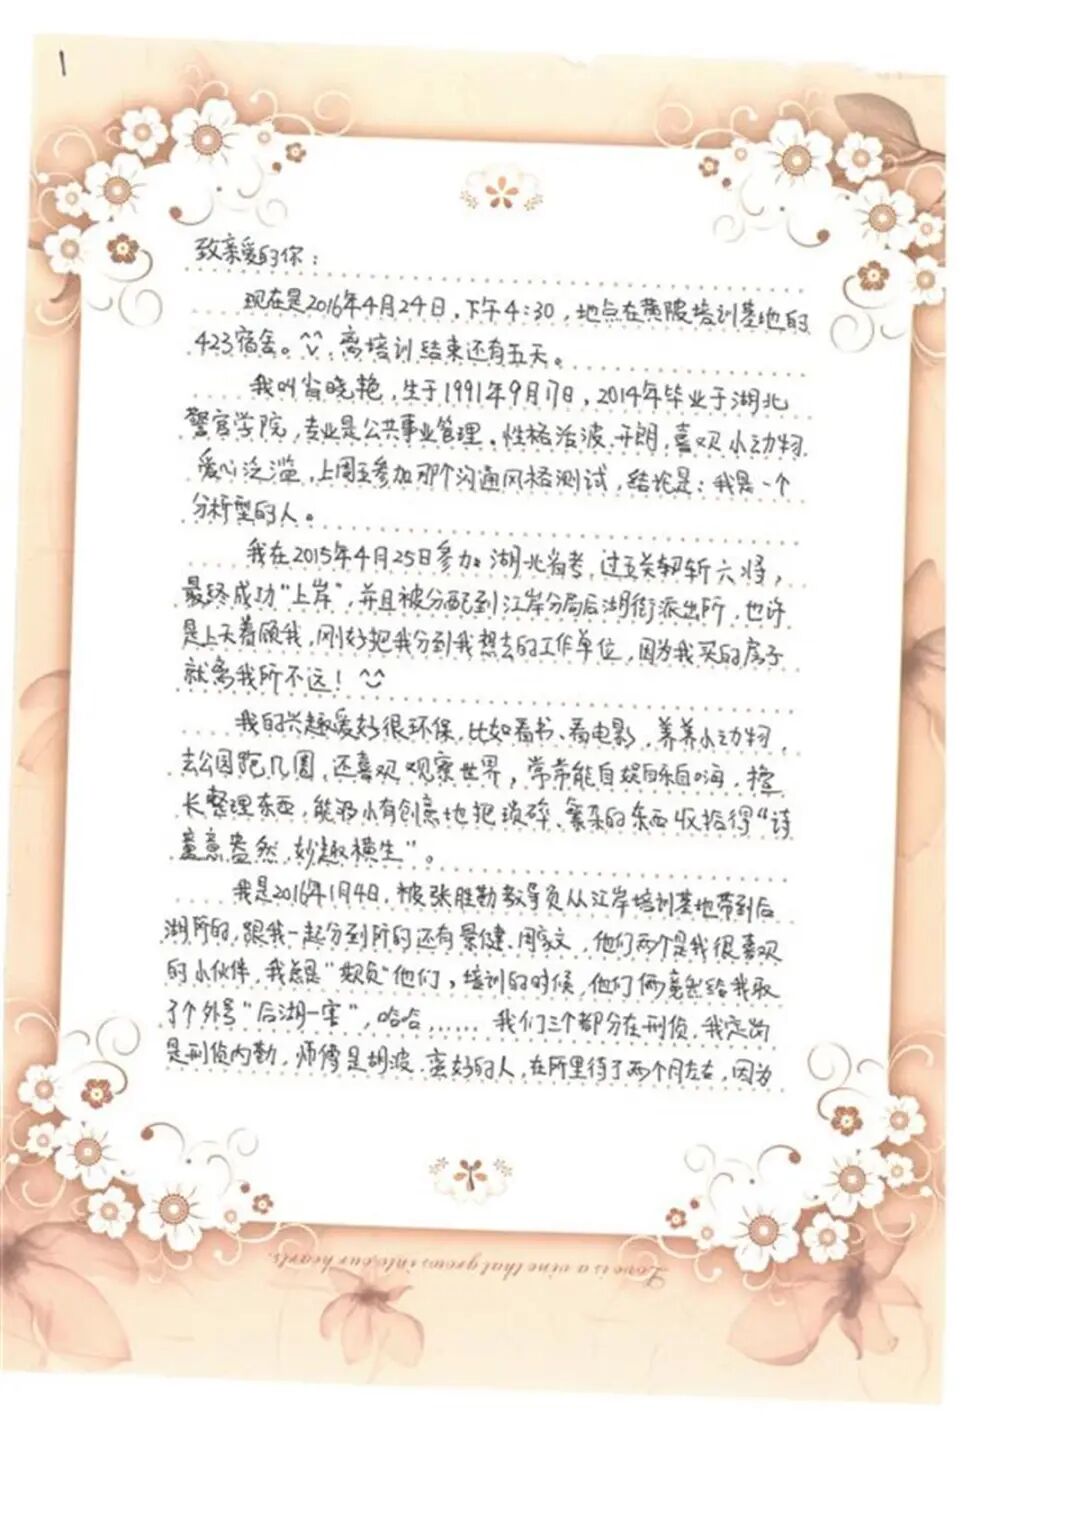 1
致亲爱的你：
现在是2016年4月24日，下午4:30，地点在黄陂培训基地的
423宿舍。^^ 离培训结束还有五天。
我叫肖晓艳，生于1991年9月17日，2014年毕业于湖北
警官学院，专业是公共事业管理。性格活波、开朗，喜欢小动物，
爱心泛滥，上周五参加那个沟通风格测试，结论是：我是一个
分析型的人。
我在2015年4月25日参加湖北省考，过五关斩六将，
最终成功“上岸”，并且被分配到江岸分局后湖街派出所，也许
是上天眷顾我，刚好把我分到我想去的工作单位，因为我买的房子
就离我所不远！^^
我的兴趣爱好很环保，比如看书、看电影，养养小动物，
去公园跑几圈，还喜欢观察世界，常常能自娱自乐自嗨，擅
长整理东西，能够小有创意地把琐碎、繁杂的东西收拾得“诗
意盎然，妙趣横生”。
我是2016年1月4日，被张胜勤教导员从江岸培训基地带到后
湖所的，跟我一起分到所的还有景健、周家文，他们两个是我很喜欢
的小伙伴，我总是“欺负”他们，培训的时候，他们俩竟然给我取
了个外号“后湖一害”，哈哈…… 我们三个都分在刑侦，我定岗
是刑侦内勤，师傅是胡波，蛮好的人，在所里待了两个月左右，因为
Love is a vine that grows into our hearts.